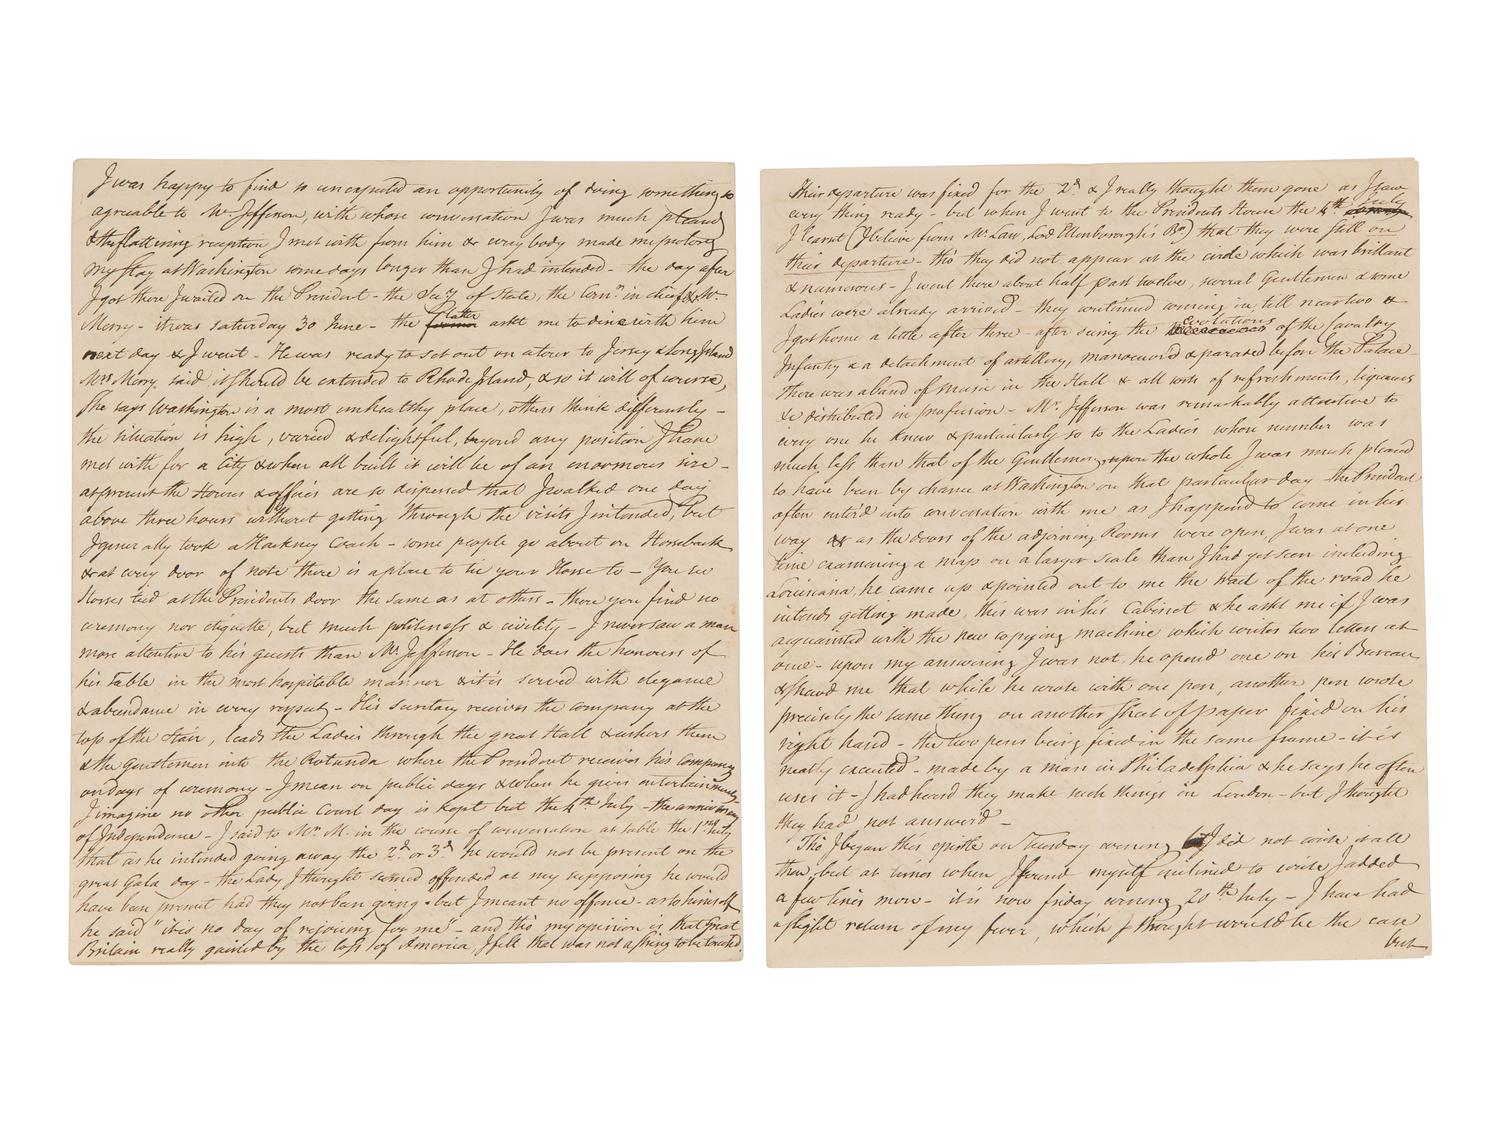 I was happy to find so unexpected an opportunity of doing something so
agreable to Mr. Jefferson, with whose conversation I was much pleased
& the flattering reception I met with from him & every body made me protong
my stay at Washington some days longer than I had intended - the day after
I got there I waited on the President - the Secy of State, the Comr in chief & Mr.
Merry - it was saturday 30 June - the former latter askt me to dine with him
next day & I went - He was ready to set out on a tour to Jersey & Long Island
Mrs Merry said, it should be extended to Rhode Island, & so it will of course,
She says Washington is a most unhealthy place, others think differently -
the situation is high, varied & delightful, beyond any position I have
met with for a City & when all built it will be of an enormous size -
at present the Houses & offices are so dispersed that I walked one day
above three hours without getting through the visits I intended, but
I generally took a Hackney Coach - some people go about on Horseback
& at every door of note there is a place to tie your Horse to - You see
Horses tied at the Presidents door the same as at others - there you find no
ceremony nor etiquette, but much politeness & civility - I never saw a man
more attentive to his guests than Mr Jefferson - He does the honours of
his Table in the most hospitable manner & it is served with elegance
& abundance in every respect - His secretary receives the company at the
top of the stair, leads the Ladies through the great Hall & ushers them
& the gentlemen into the Rotunda where the President receives his company
on days of ceremony - I mean on public days & when he gives entertainments
I imagine no other public Court day is kept but the 4th July - the anniversary
of Independence - I said to Mr. M. in the course of conversation at table the 1st July
that as he intended going away the 2d. or 3d he would not be present on the
great Gala day - the Lady I thought seemed offended at my supposing he would
have been present had they not been going - but I meant no offence - as to himself
he said "it is no day of rejoicing for me" - and tho' my opinion is, that Great
Britain really gained by the loss of America, I felt that was not a string to be touched.
Their departure was fixed for the 2d & I really thought them gone as I saw
every thing ready - but when I went to the Presidents House the 4th July
I learnt (I believe from Mr Law, Lord Ellenborough's Br.) that they were still on
their departure - tho' they did not appear at the circle which was brilliant
& numerous - I went there about half past twelve, several Gentlemen & some
Ladies were already arrived - they continued coming in till near two &
I got home a little after three - after seeing the evolutions of the Cavalry
Infantry & a detachment of artillery, manoeuvrd & paraded before the Palace -
There was a band of Music in the Hall & all sorts of refreshments, liqueurs
&c distributed in profusion - Mr. Jefferson was remarkably attentive to
every one he knew & particularly so to the Ladies whose number was
much less than that of the Gentlemen, upon the whole I was much pleased
to have been by chance at Washington on that particular day the President
often enter'd into conversation with me as I happen'd to come in his
way & as the doors of the adjoining Rooms were open, I was at one
time examining a map on a larger scale than I had yet seen including
Louisiana, he came up & pointed out to me the trail of the road he
intends getting made, this was in his Cabinet & he askt me if I was
acquainted with the new copying machine which writes two letters at
once - upon my answering I was not, he opend one on his Bureau
& shewd me that while he wrote with one pen, another pen wrote
precisely the same thing on another sheet of paper fixed on his
right hand - the two pens being fixed in the same frame - it is
neatly executed - made by a man in Philadelphia & he says he often
uses it - I had heard they make such things in London - but I thought
they had not answerd -
Tho' I began this epistle on Tuesday evening I did not write it all
then, but at times when I found myself inclined to write I added
a few lines more - it is now friday evening 20th July - I have had
a slight return of my fever, which I thought would be the case
but